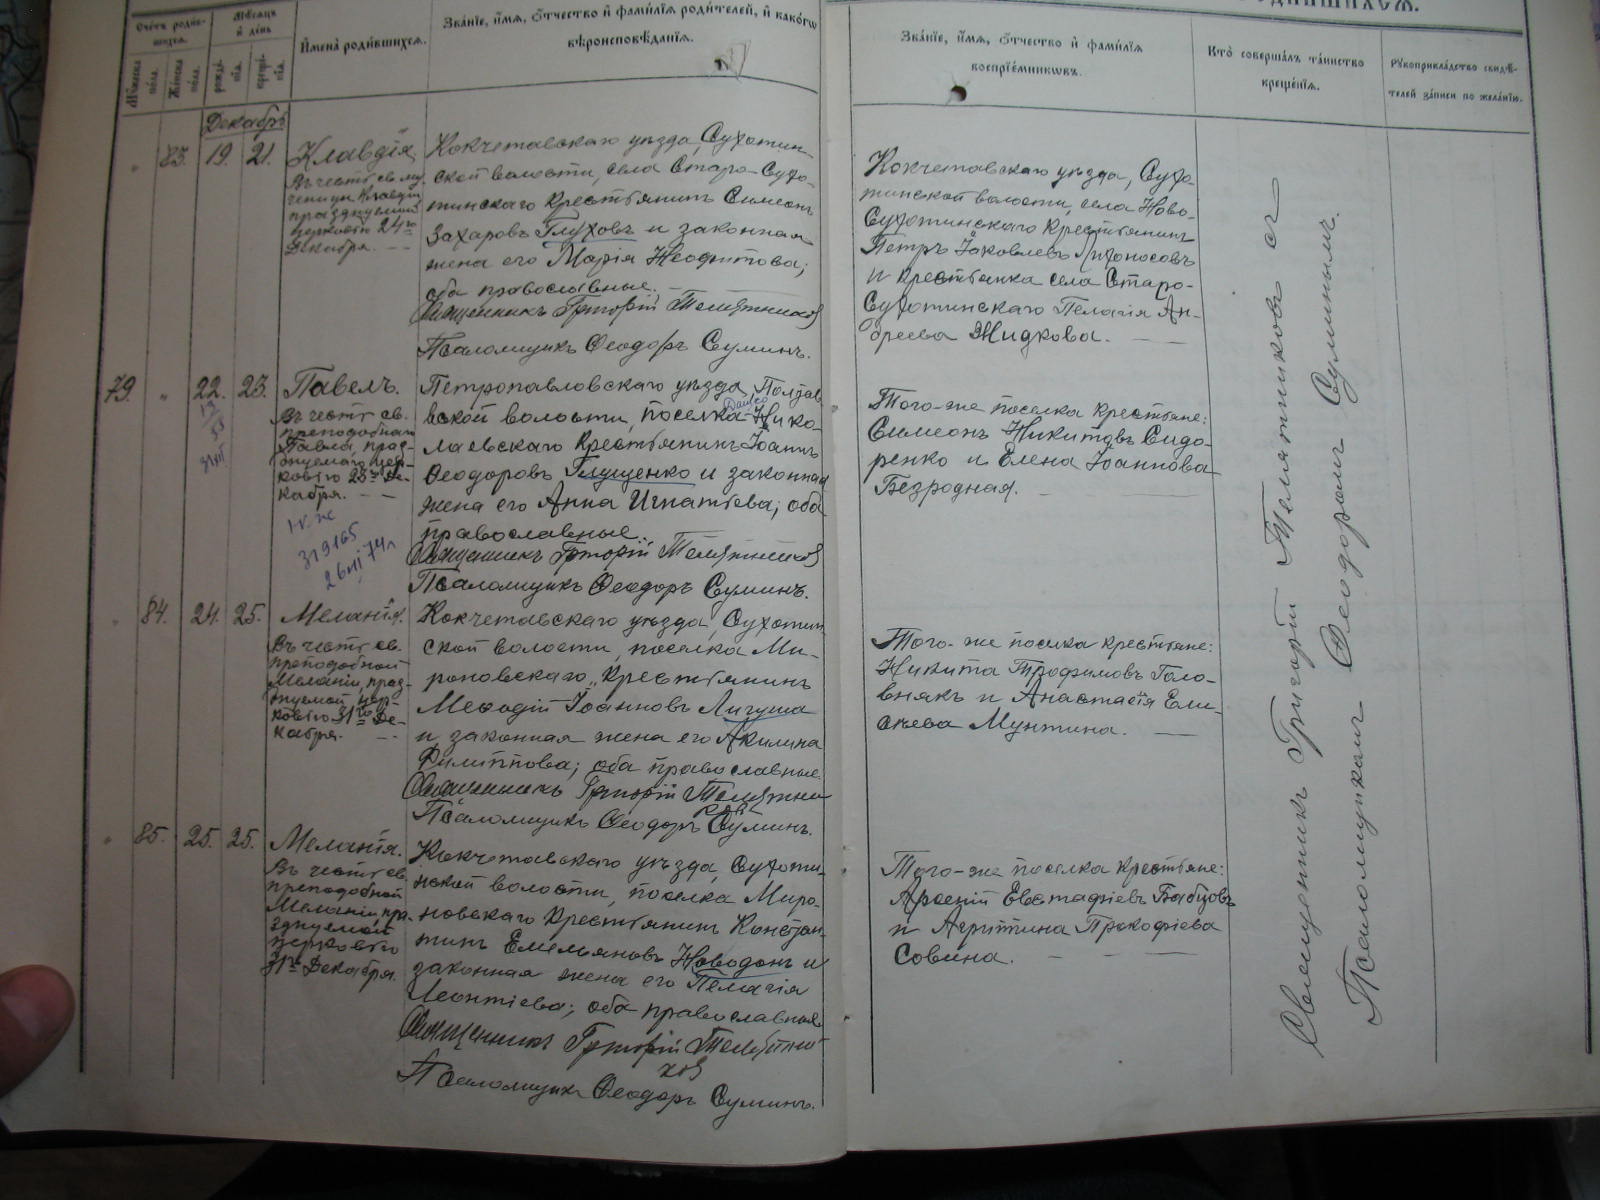 Счетъ родив-
шихся.
Мѣсяцъ
и день
Мужеска
пола.
Женска
пола.
рожде-
нія.
креще-
нія.
Имена родившихся.
Званіе, имя, отчество и фамилія родителей, и какого
вѣроисповѣданія.
Декабрь
83. 19. 21.
Клавдія
Въ честь св. му-
ченицы Клавдіи
празднуемой
церковію 24го
Декабря.
Кокчетавскаго уѣзда, Сухотин-
ской волости, села Старо-Сухо-
тинскаго крестьянинъ Симеонъ
Захаровъ Глуховъ и законная
жена его Марія Неофитова;
оба православные.
Священникъ Григорій Телятниковъ
Псаломщикъ Ѳеодоръ Суминъ.
79. " 22. 23.
Павелъ.
Въ честь св.
преподобнаго
Павла, праз-
днуемаго цер-
ковію 23го Де-
кабря.
319165
Петропавловскаго уѣзда, Полтав-
ской волости, поселка Нико-
лаевскаго крестьянинъ Іоаннъ
Ѳеодоровъ Глущенко и законная
жена его Анна Игнатьева; оба
православные.
Священникъ Григорій Телятниковъ
Псаломщикъ Ѳеодоръ Суминъ.
" 84. 24. 25.
Меланія.
Въ честь св.
преподобной
Меланіи, праз-
днуемой цер-
ковію 31го Де-
кабря.
Кокчетавскаго уѣзда, Сухотин-
ской волости, поселка Ми-
роновскаго, крестьянинъ
Меѳодій Іоанновъ Лигуша
и законная жена его Акилина
Филиппова; оба православные.
Священникъ Григорій Телятни-
ковъ
Псаломщикъ Ѳеодоръ Суминъ.
" 85. 25. 25.
Меланія.
Въ честь св.
преподобной
Меланіи, пра-
зднуемой
церковію
31го Декабря.
Кокчетавскаго уѣзда, Сухоти-
нской волости, поселка Миро-
новскаго крестьянинъ Констан-
тинъ Емельяновъ Новодонъ и
законная жена его Пелагія
Леонтіева; оба православные
Священникъ Григорій Телятни-
ковъ
Псаломщикъ Ѳеодоръ Суминъ.
Званіе, имя, отчество и фамилія
воспріемниковъ.
Кто совершалъ таинство
крещенія.
Рукоприкладство свидѣ-
телей записи по желанію.
Кокчетавскаго уѣзда, Сухо-
тинской волости, села Ново-
Сухотинскаго крестьянинъ
Петръ Іаковлевъ Лихоносовъ
и крестьянка села Старо-
Сухотинскаго Пелагія Ан-
дреева Жидкова.
Того-же поселка крестьяне:
Симеонъ Никитовъ Сидо-
ренко и Елена Іоаннова
Безродная.
Того-же поселка крестьяне:
Никита Трофимовъ Голо-
внякъ и Анастасія Ели-
сѣева Мунтина.
Того-же поселка крестьяне:
Арсеній Евстафіевъ Бабцовъ
и Агриппина Прокофіева
Совина.
Священникъ Григорій Телятниковъ съ
Псаломщикомъ Ѳеодоромъ Суминымъ.